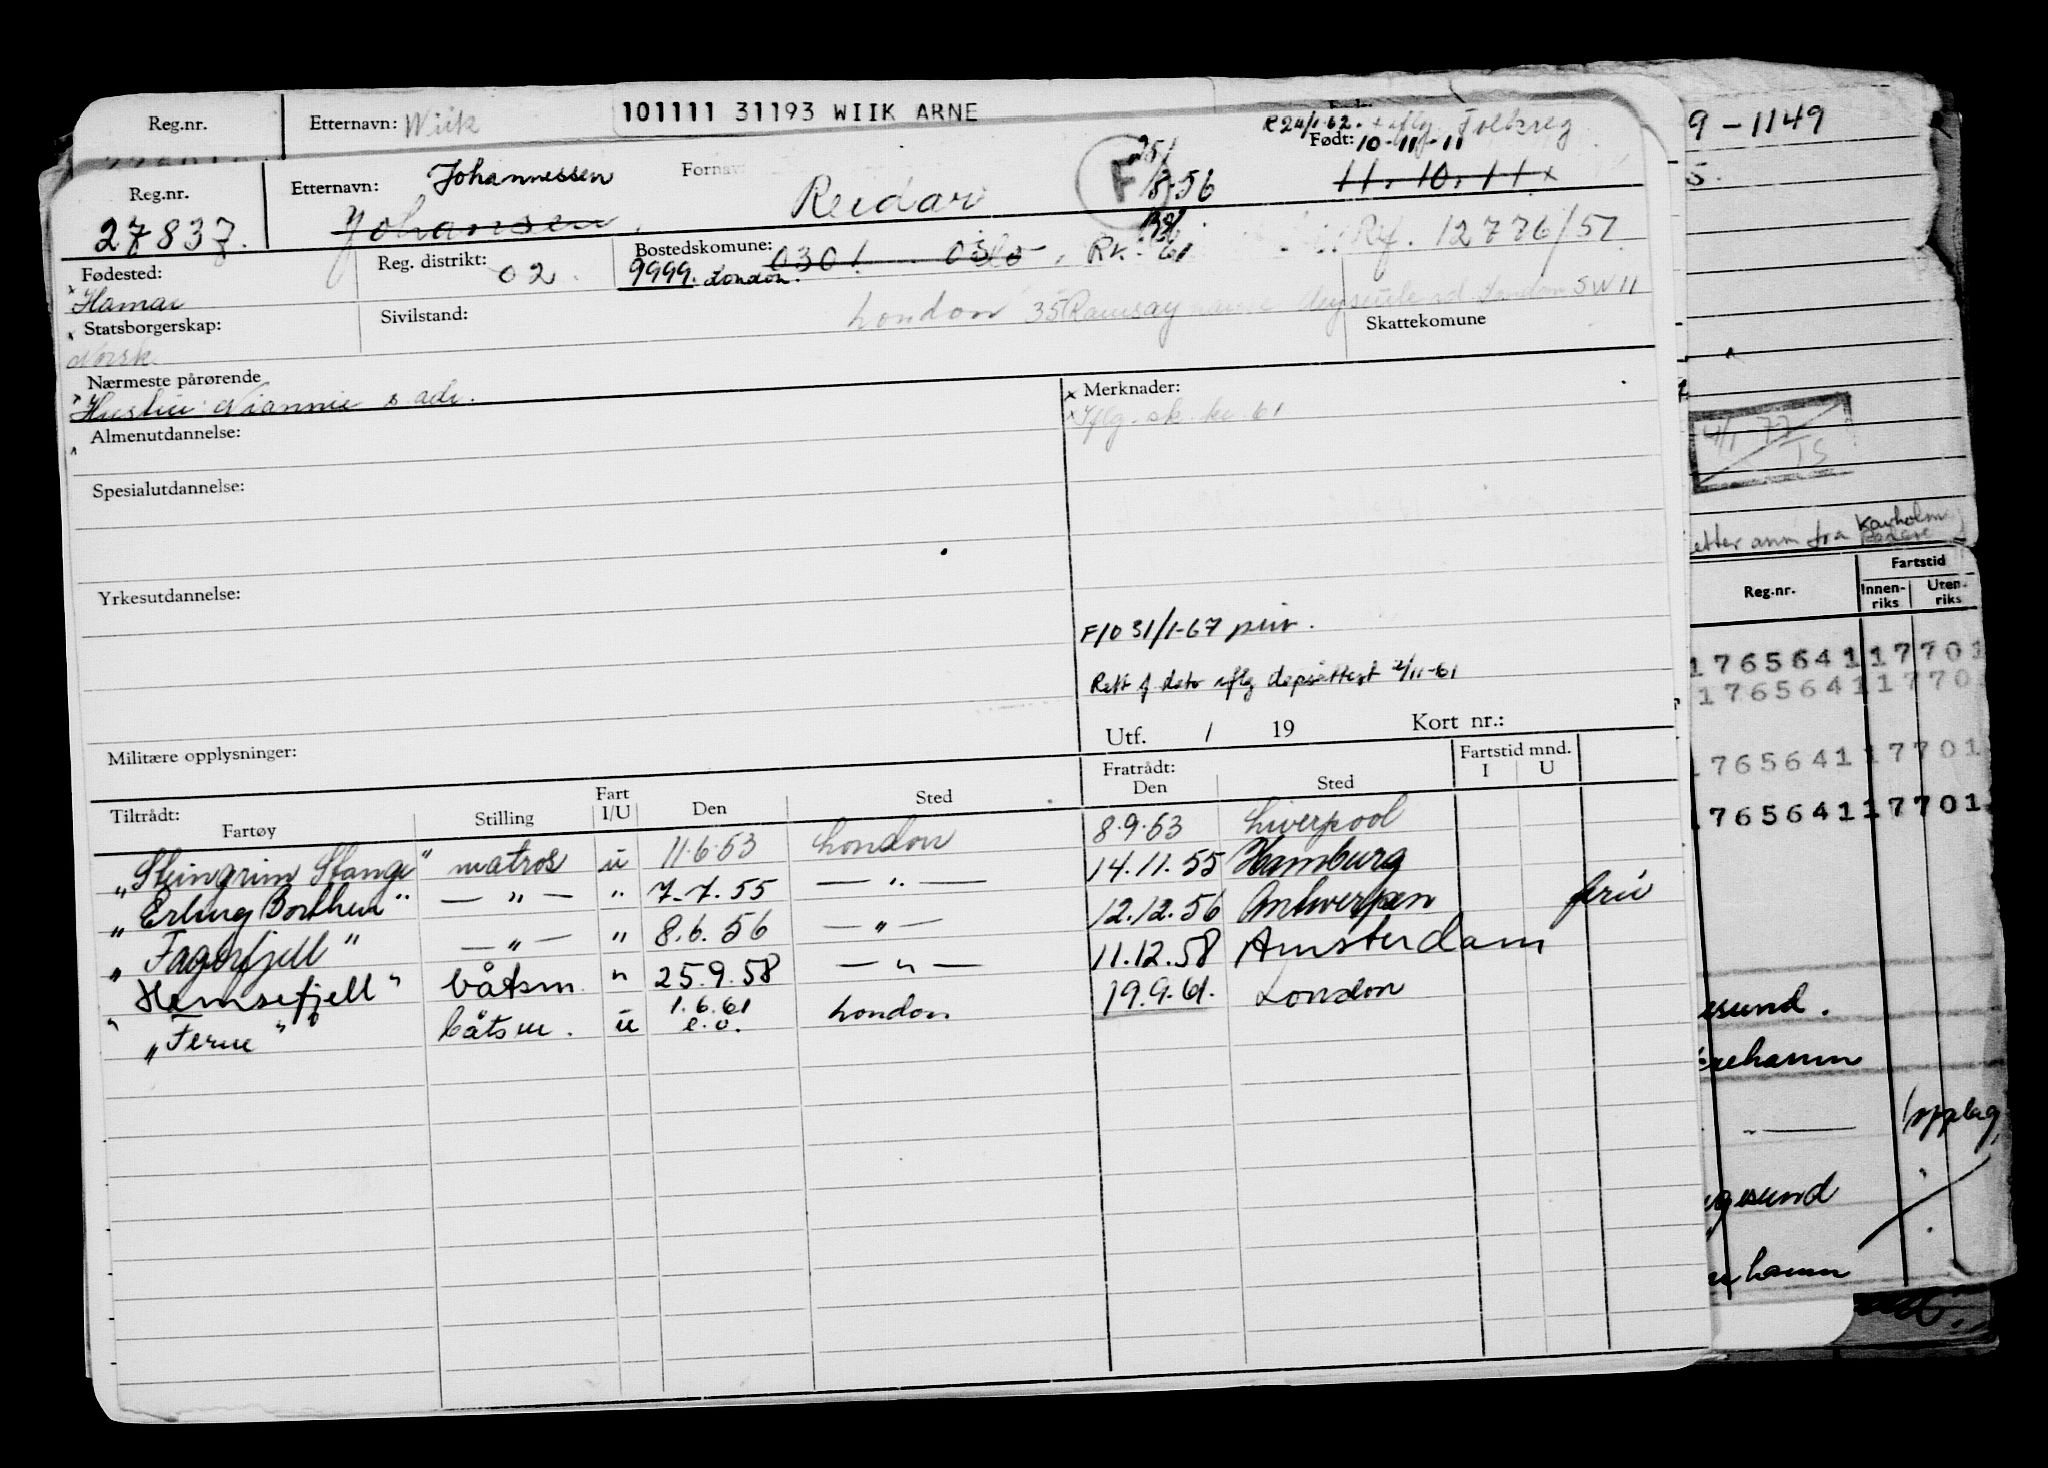 Reg.nr. Etternavn: Wiik 101111 31193 WIIK ARNE
R 24/1-62. Folkreg 9-1149
Reg.nr. Etternavn: Johannessen Født: 10-11-11
27837. Johansen, Reidar F 8-56 11.10.11 x
Fødested: Reg. distrikt: 02 Bostedskomune: 0301 Oslo, Rk. 61 Rf. 12776/57
Hamar 9999. London.
Statsborgerskap: Sivilstand: London 35 Ramsay London SW 11
Norsk Skattekomune
Nærmeste pårørende Merknader:
Hustru s. adr. Iflg. sk. 61
Almenutdannelse:
4/1-77
TS
Spesialutdannelse:
etter anm fra
Yrkesutdannelse:
Fartstid
Reg.nr. Innen-riks Uten-riks
F10 31/1-67 priv.
1765641 17701
1765641 1770
Rett f dato iflg 2/11-61
Utf. / 19 Kort nr.:
Militære opplysninger:
1765641 17701
1765641 17701
Tiltrådt: Fratrådt: Fartstid mnd.
Fartøy Stilling Fart I/U Den Sted Den Sted I U
"Steingrim Stange" matros u 11.6.53 London 8.9.53 Liverpool
"Erling Borthen" — " — " 7.7.55 — " — 14.11.55 Hamburg
"Fagerfjell" — " — " 8.6.56 — " — 12.12.56 Antwerpen friv
"Hemsefjell" båtsm. " 25.9.58 — " — 11.12.58 Amsterdam
"Ferm" båtsm. u 1.6.61 e.o. London 19.9.61. London
esund.
ehamn
opplag
gesund
hamn